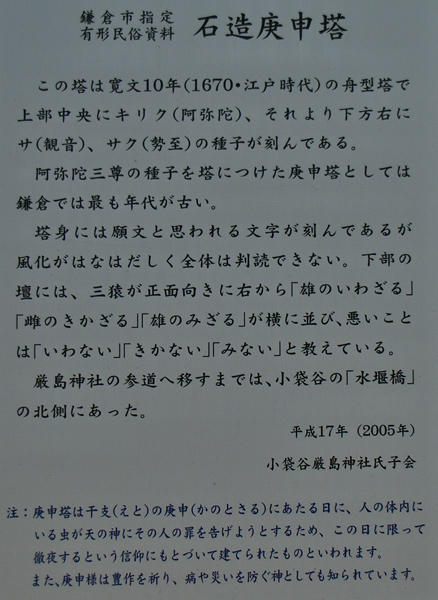 鎌倉市指定
有形民俗資料 石造庚申塔
この塔は寛文10年(1670・江戸時代)の舟型塔で
上部中央にキリク(阿弥陀)、それより下方右に
サ(観音)、サク(勢至)の種子が刻んである。
阿弥陀三尊の種子を塔につけた庚申塔としては
鎌倉では最も年代が古い。
塔身には願文と思われる文字が刻んであるが
風化がはなはだしく全体は判読できない。下部の
壇には、三猿が正面向きに右から「雄のいわざる」
「雌のきかざる」「雄のみざる」が横に並び、悪いこと
は「いわない」「きかない」「みない」と教えている。
厳島神社の参道へ移すまでは、小袋谷の「水堰橋」
の北側にあった。
平成17年 (2005年)
小袋谷厳島神社氏子会
注:庚申塔は干支(えと)の庚申(かのとさる)にあたる日に、人の体内に
いる虫が天の神にその人の罪を告げようとするため、この日に限って
徹夜するという信仰にもとづいて建てられたものといわれます。
また、庚申様は豊作を祈り、病や災いを防ぐ神としても知られています。